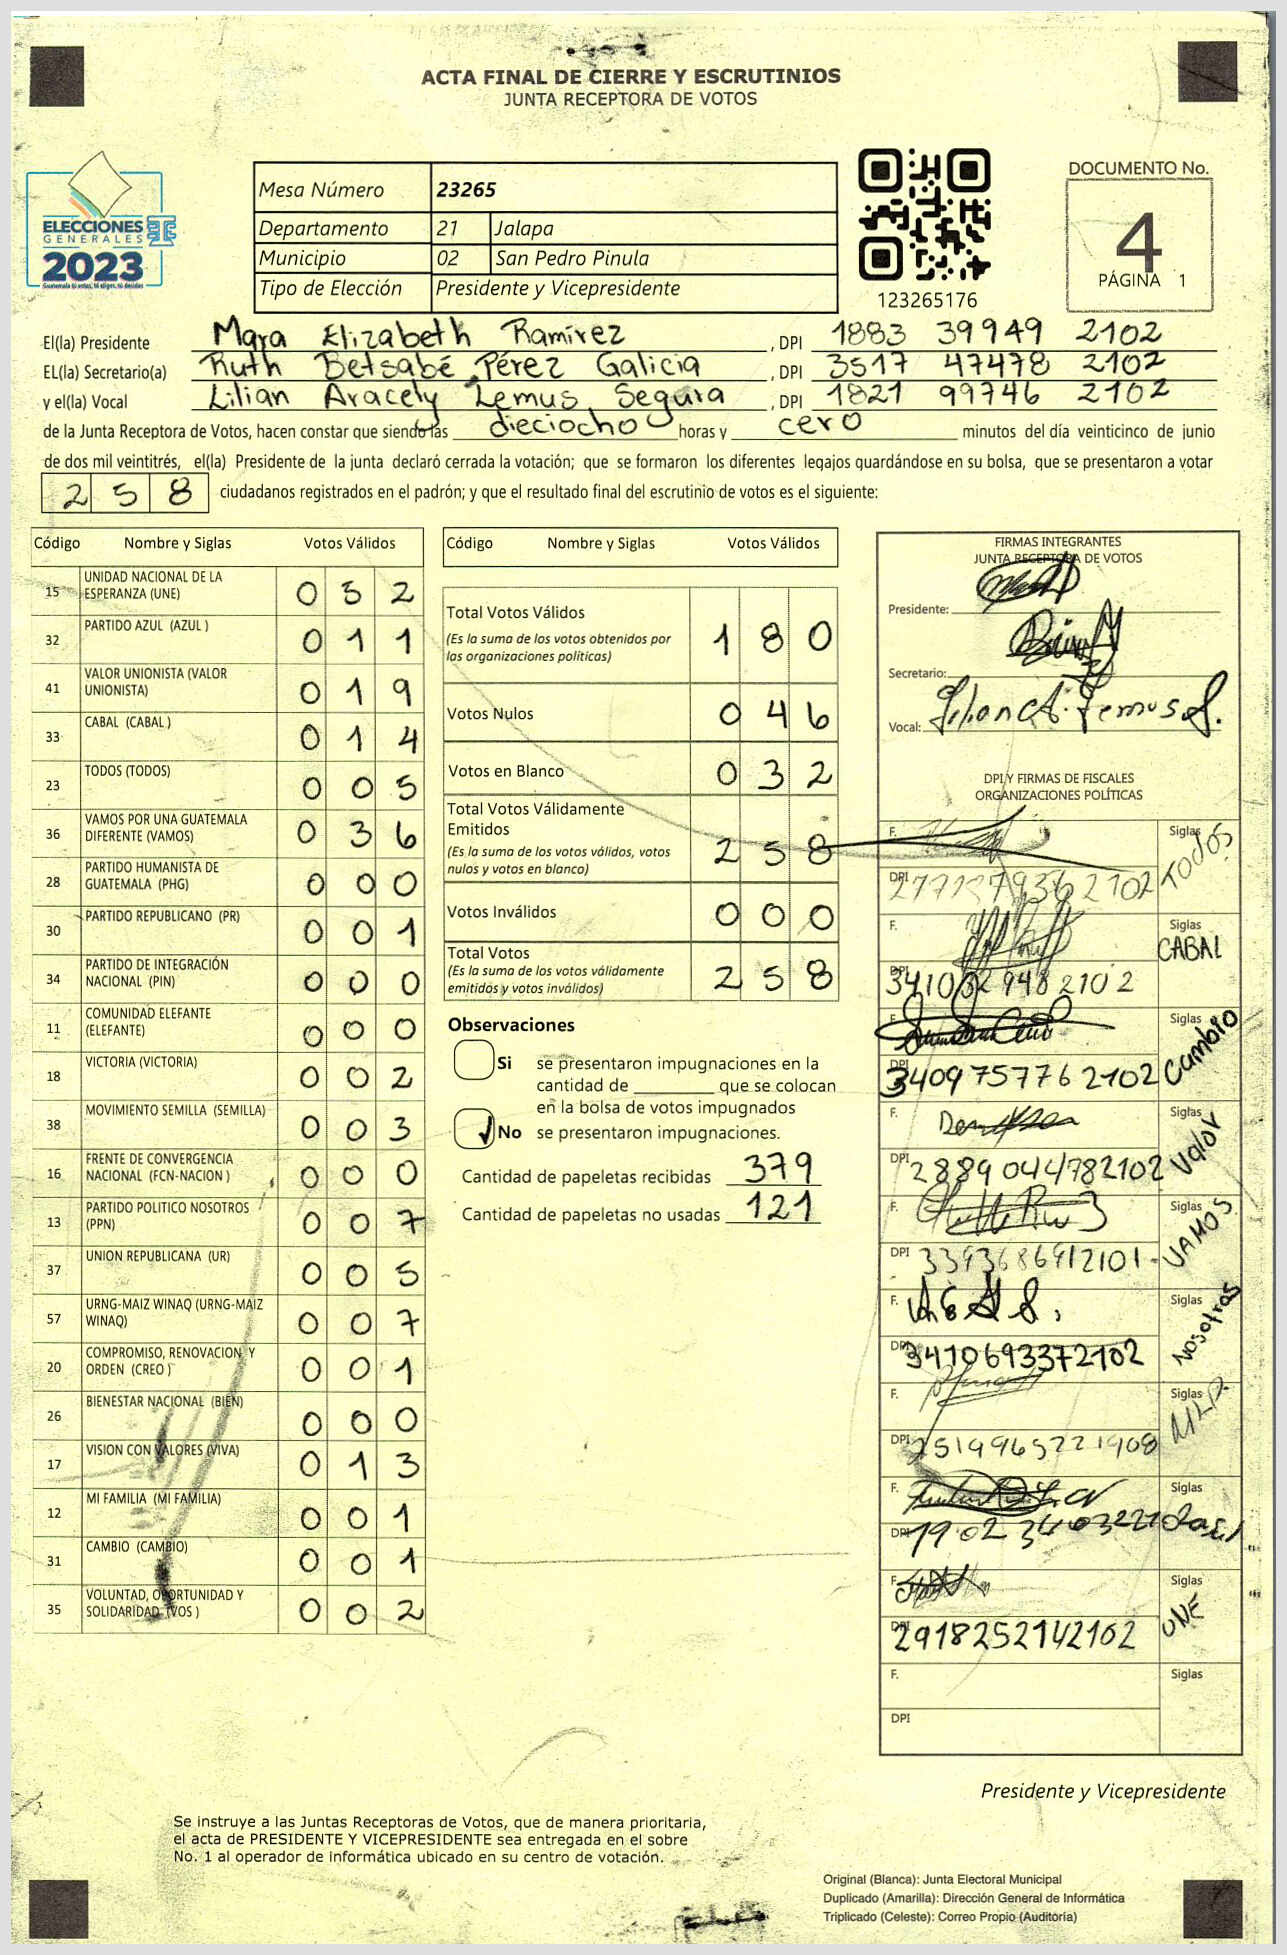 ACTA FINAL DE CIERRE Y ESCRUTINIOS
JUNTA RECEPTORA DE VOTOS
ELECCIONES
GENERALES
2023
Guatemala tú votas, tú eliges, tú decides
Mesa Número 23265
Departamento 21 Jalapa
Municipio 02 San Pedro Pinula
Tipo de Elección Presidente y Vicepresidente
123265176
DOCUMENTO No.
4
PÁGINA 1
El(la) Presidente Mara Elizabeth Ramírez , DPI 1883 39949 2102
EL(la) Secretario(a) Ruth Betsabé Pérez Galicia , DPI 3517 47478 2102
y el(la) Vocal Lilian Aracely Lemus Segura , DPI 1821 99746 2102
de la Junta Receptora de Votos, hacen constar que siendo las dieciocho horas y cero minutos del día veinticinco de junio
de dos mil veintitrés, el(la) Presidente de la junta declaró cerrada la votación; que se formaron los diferentes legajos guardándose en su bolsa, que se presentaron a votar
258 ciudadanos registrados en el padrón; y que el resultado final del escrutinio de votos es el siguiente:
Código Nombre y Siglas Votos Válidos
15 UNIDAD NACIONAL DE LA ESPERANZA (UNE) 0 5 2
32 PARTIDO AZUL (AZUL ) 0 1 1
41 VALOR UNIONISTA (VALOR UNIONISTA) 0 1 9
33 CABAL (CABAL ) 0 1 4
23 TODOS (TODOS) 0 0 5
36 VAMOS POR UNA GUATEMALA DIFERENTE (VAMOS) 0 3 6
28 PARTIDO HUMANISTA DE GUATEMALA (PHG) 0 0 0
30 PARTIDO REPUBLICANO (PR) 0 0 1
34 PARTIDO DE INTEGRACIÓN NACIONAL (PIN) 0 0 0
11 COMUNIDAD ELEFANTE (ELEFANTE) 0 0 0
18 VICTORIA (VICTORIA) 0 0 2
38 MOVIMIENTO SEMILLA (SEMILLA) 0 0 3
16 FRENTE DE CONVERGENCIA NACIONAL (FCN-NACION ) 0 0 0
13 PARTIDO POLITICO NOSOTROS (PPN) 0 0 7
37 UNION REPUBLICANA (UR) 0 0 5
57 URNG-MAIZ WINAQ (URNG-MAIZ WINAQ) 0 0 7
20 COMPROMISO, RENOVACION Y ORDEN (CREO ) 0 0 1
26 BIENESTAR NACIONAL (BIEN) 0 0 0
17 VISION CON VALORES (VIVA) 0 1 3
12 MI FAMILIA (MI FAMILIA) 0 0 1
31 CAMBIO (CAMBIO) 0 0 1
35 VOLUNTAD, OPORTUNIDAD Y SOLIDARIDAD (VOS ) 0 0 2
Código Nombre y Siglas Votos Válidos
Total Votos Válidos 1 8 0
(Es la suma de los votos obtenidos por
las organizaciones políticas)
Votos Nulos 0 4 6
Votos en Blanco 0 3 2
Total Votos Válidamente
Emitidos 2 5 8
(Es la suma de los votos válidos, votos
nulos y votos en blanco)
Votos Inválidos 0 0 0
Total Votos 2 5 8
(Es la suma de los votos válidamente
emitidos y votos inválidos)
Observaciones
Si se presentaron impugnaciones en la
cantidad de ________ que se colocan
en la bolsa de votos impugnados
No se presentaron impugnaciones.
Cantidad de papeletas recibidas 379
Cantidad de papeletas no usadas 121
FIRMAS INTEGRANTES
JUNTA RECEPTORA DE VOTOS
Presidente:
Secretario:
Vocal: Lilian A. Lemus S.
DPI Y FIRMAS DE FISCALES
ORGANIZACIONES POLÍTICAS
F. Siglas TODOS
DPI
F. Siglas CABAL
DPI
F. Siglas Cambio
DPI 3409757762102
F. Siglas Valor
DPI 2889044782102
F. Siglas VAMOS
DPI 3393686912101
F. Siglas Nosotros
DPI 3410693372102
F. Siglas MLP
DPI
F. Siglas
DPI
F. Siglas UNE
DPI 2918252142102
F. Siglas
DPI
Presidente y Vicepresidente
Se instruye a las Juntas Receptoras de Votos, que de manera prioritaria,
el acta de PRESIDENTE Y VICEPRESIDENTE sea entregada en el sobre
No. 1 al operador de informática ubicado en su centro de votación.
Original (Blanca): Junta Electoral Municipal
Duplicado (Amarilla): Dirección General de Informática
Triplicado (Celeste): Correo Propio (Auditoría)